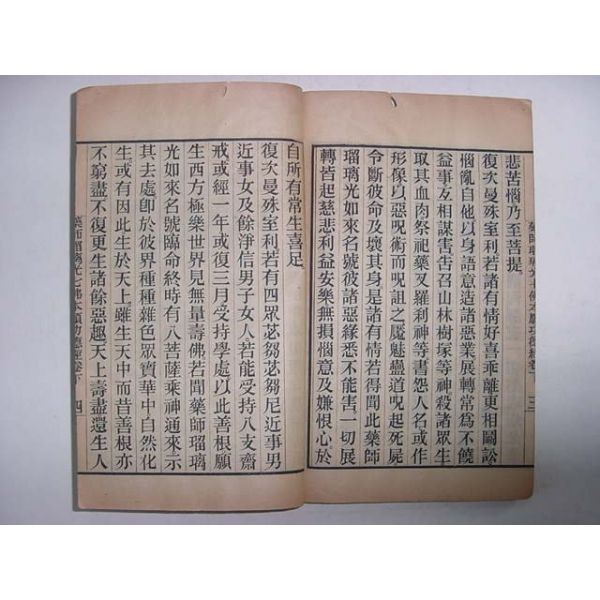 悲苦惱乃至菩提
復次曼殊室利若諸有情好喜乖離更相鬬訟
惱亂自他以身語意造諸惡業展轉常爲不饒
益事互相謀害告召山林樹冢等神殺諸眾生
取其血肉祭祀藥叉羅刹神等書怨人名或作
形像以惡呪術而呪詛之魘魅蠱道呪起死屍
令斷彼命及壞其身是諸有情若得聞此藥師
瑠璃光如來名號彼諸惡緣悉不能害一切展
轉皆起慈悲利益安樂無損惱意及嫌恨心於
藥師瑠璃光七佛本願功德經卷下 三
自所有常生喜足
復次曼殊室利若有四眾苾芻苾芻尼近事男
近事女及餘淨信男子女人若能受持八支齋
戒或經一年或復三月受持學處以此善根願
生西方極樂世界見無量壽佛若聞藥師瑠璃
光如來名號臨命終時有八菩薩乘神通來示
其去處卽於彼界種種雜色眾寶華中自然化
生或有因此生於天上雖生天中而昔善根亦
不窮盡不復更生諸餘惡趣天上壽盡還生人
藥師瑠璃光七佛本願功德經卷下 四